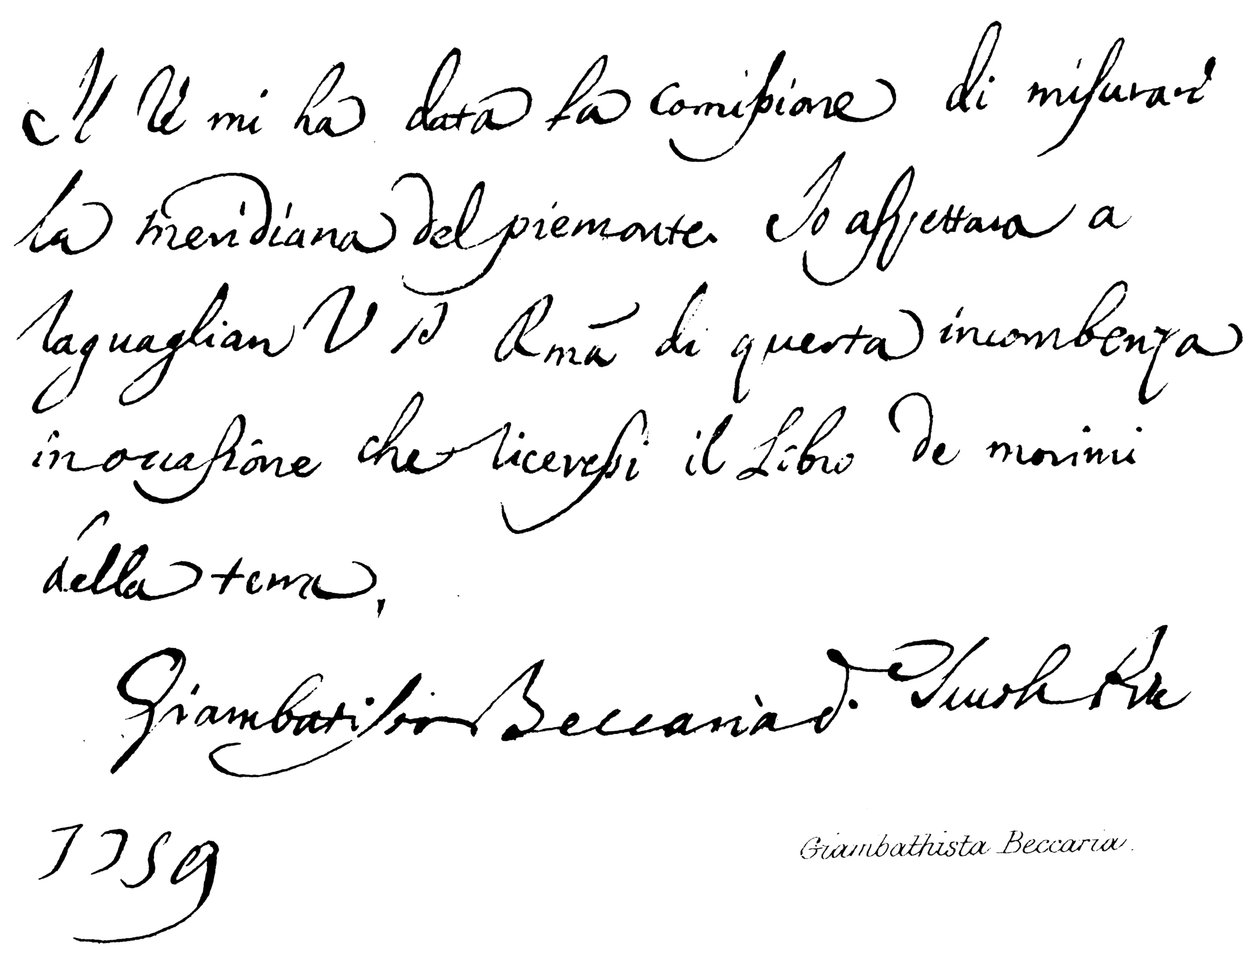 Il Re mi ha data la comissione di misurare
la meridiana del piemonte. Io aspettava a
raguagliar V P Rma di questa incombenza
in occasione che ricevessi il Libro de movimi
della terra,
Giambatista Beccaria d.
1759
Giambathista Beccaria.